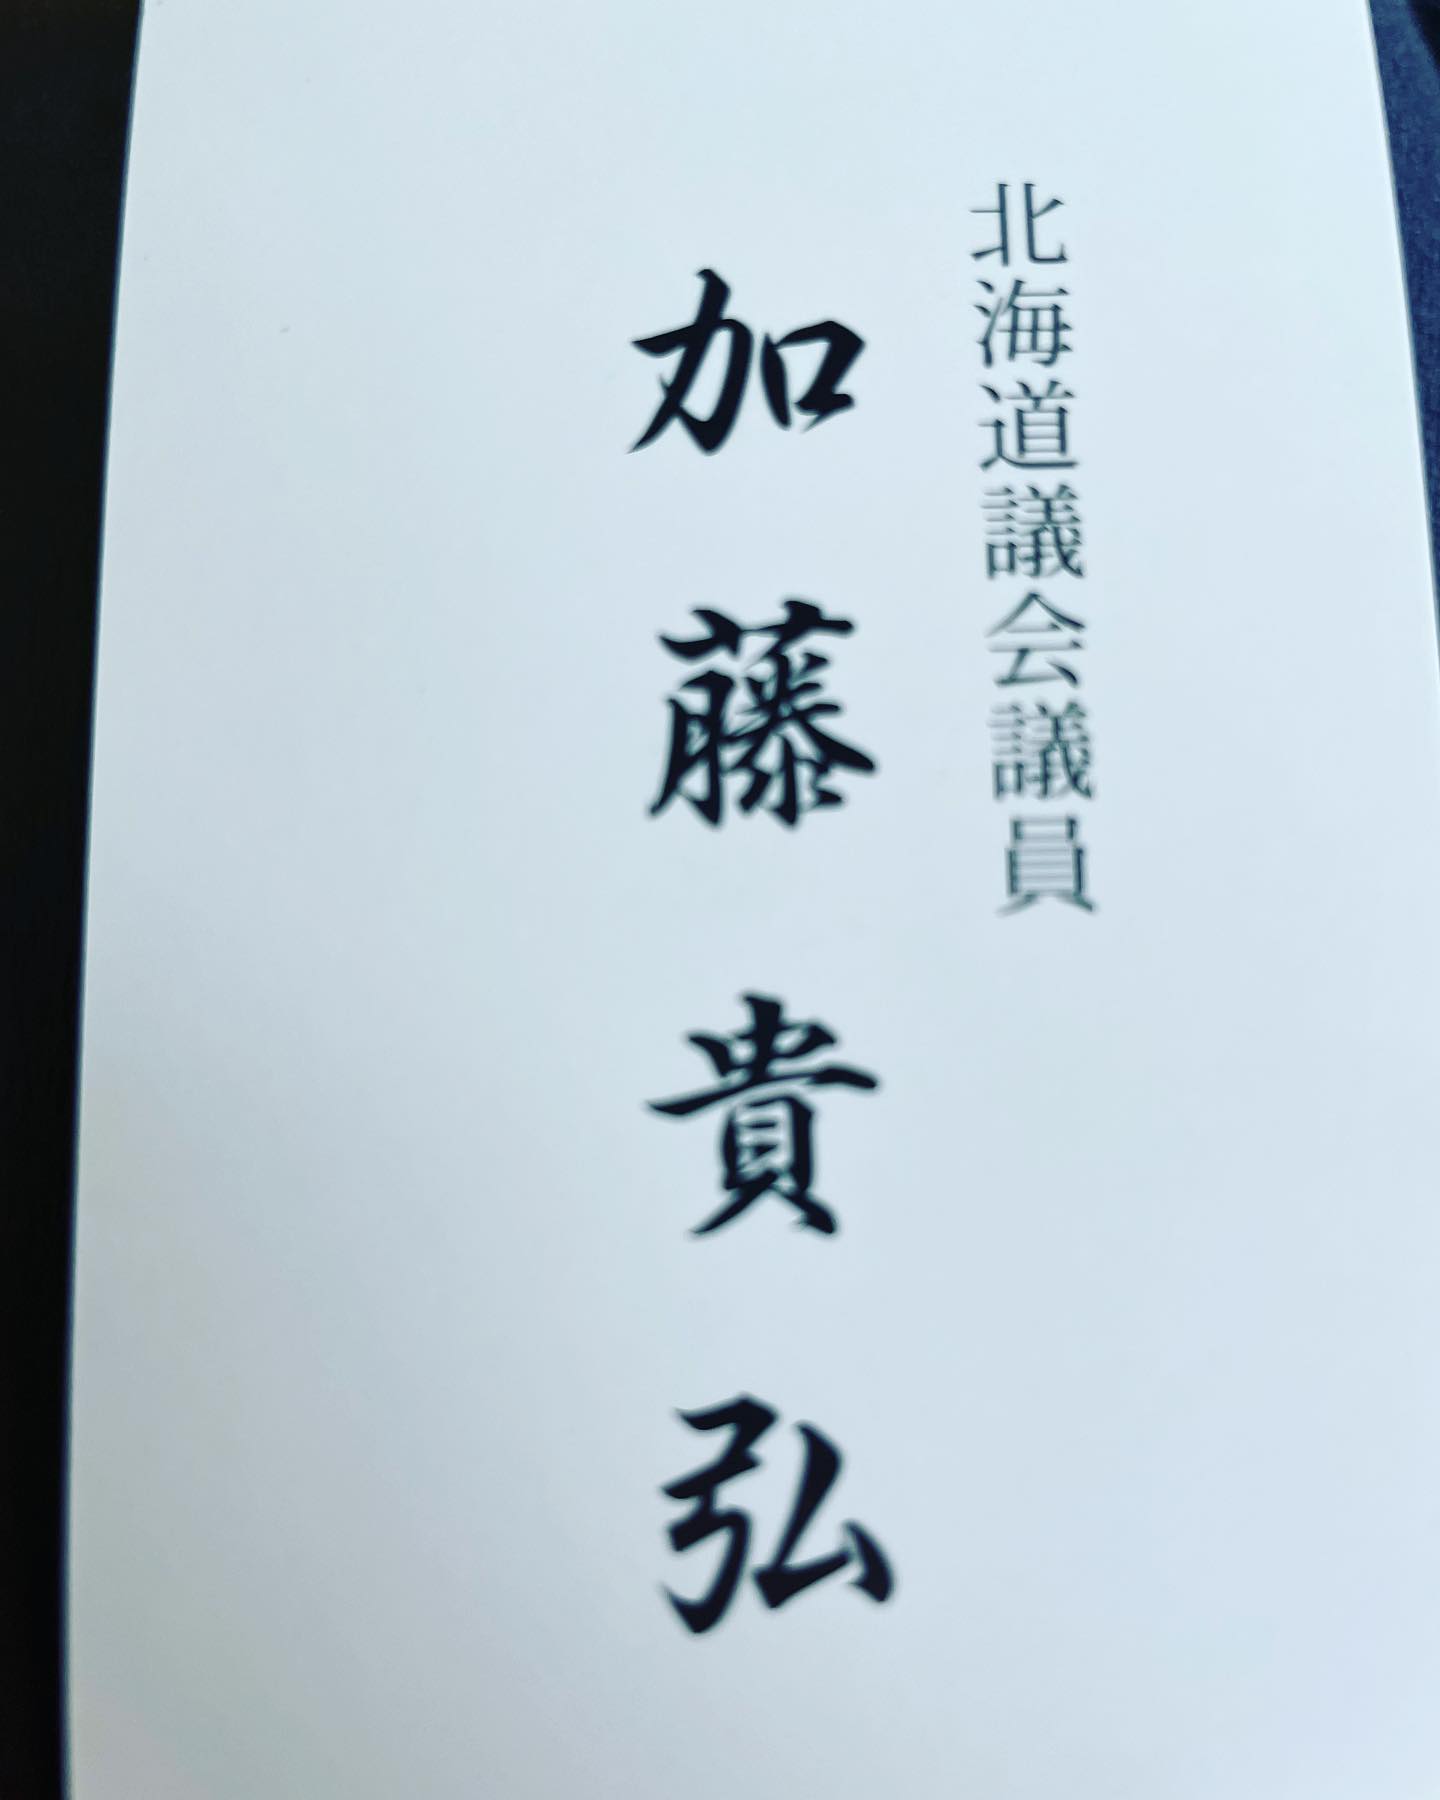 北海道議会議員
加藤貴弘